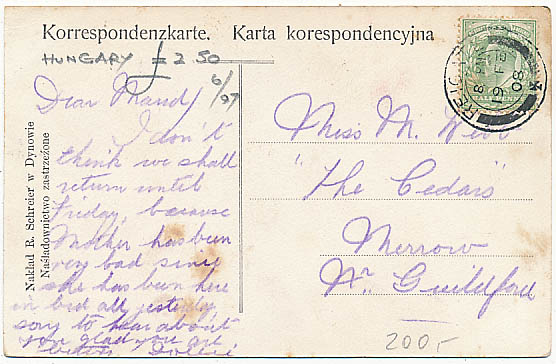 Korrespondenzkarte. Karta korespondencyjna
HUNGARY £2.50
6/97
Dear Maud,
I don't
think we shall
return until
Friday, because
Mother has been
very bad since
she has been here
in bed all yesterday,
sorry to hear about
you glad you are
Dollie
Miss M. Weir
"The Cedars"
Merrow
Nr. Guildford
200,-
REIG
8 PM
19 FE
08
Nakład R. Schreier w Dynowie
Naśladownictwo zastrzeżone